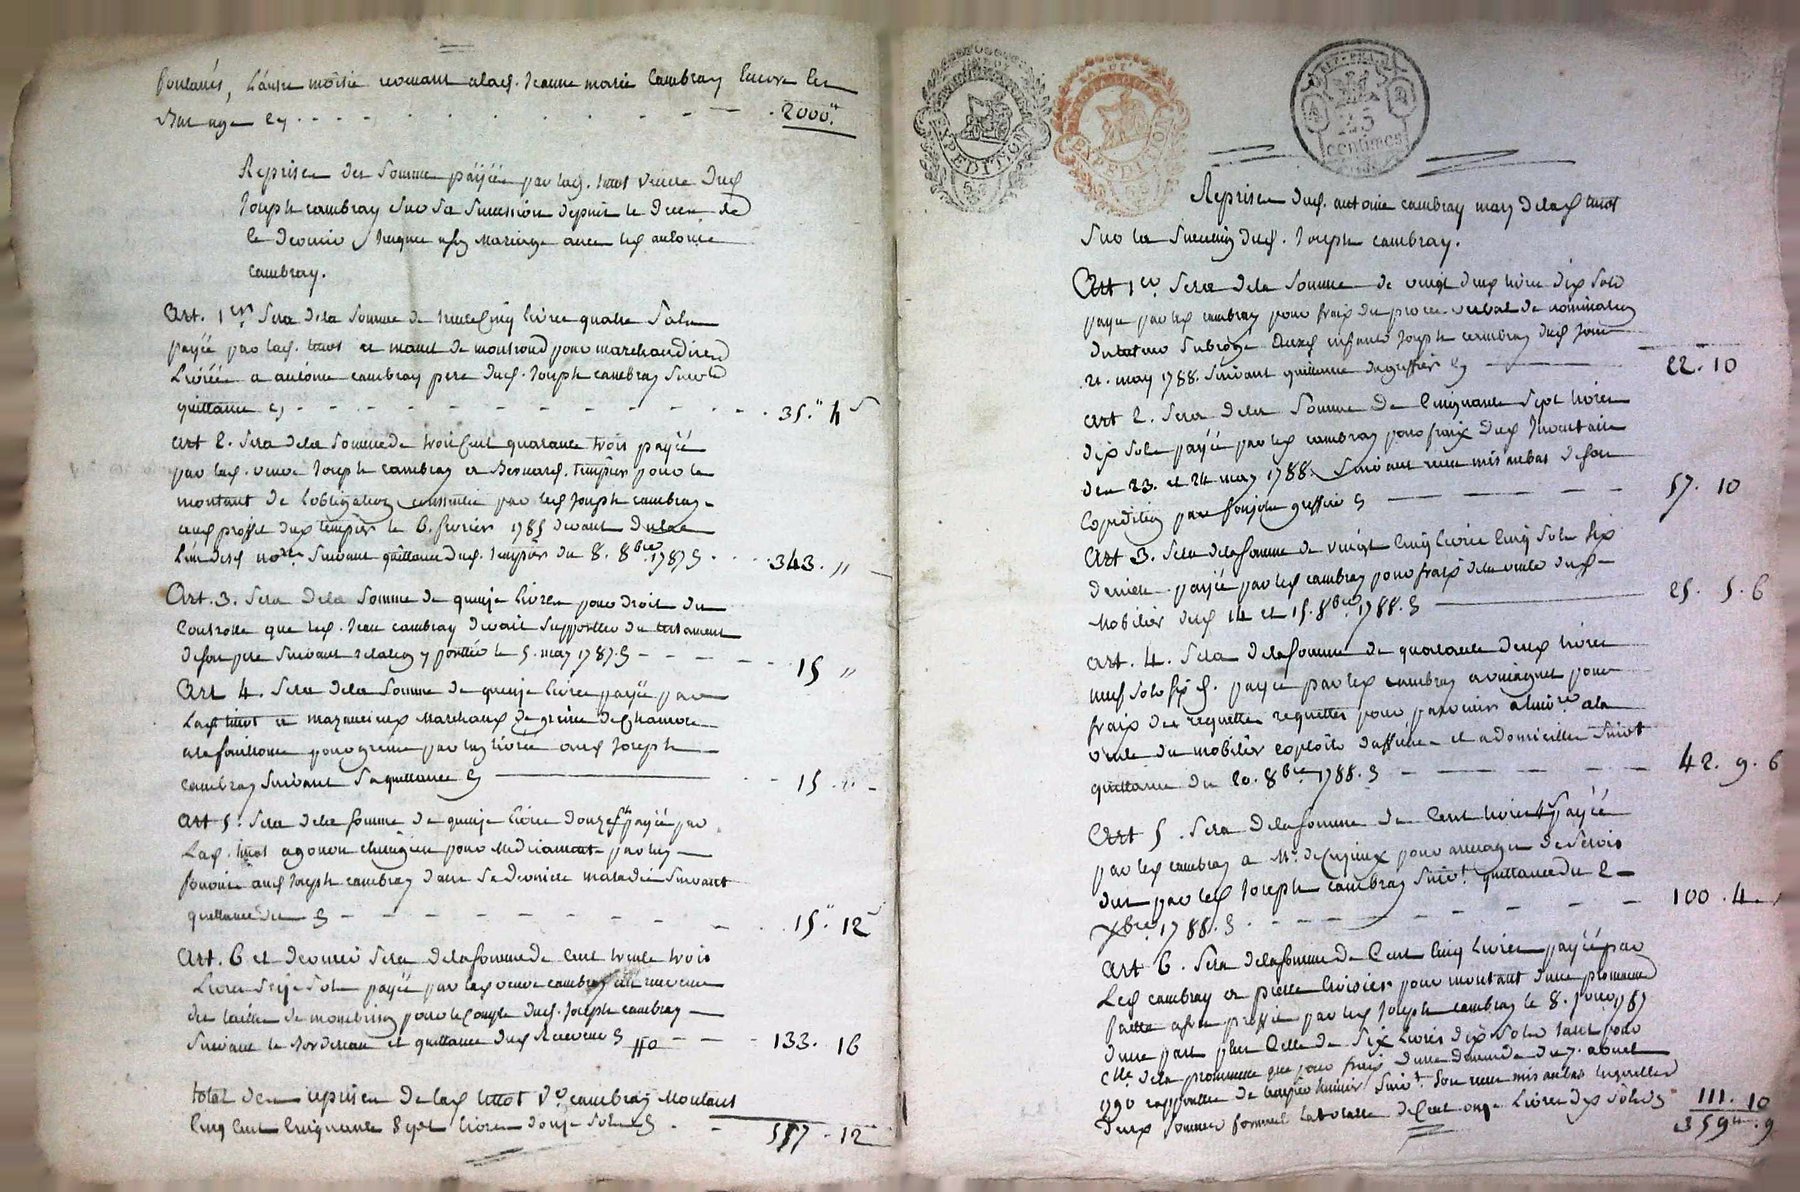 l'autre moitié revenant alad. Jeanne marie Cambray Encore En
Bas age Cy . . . . 2000.
Reprises des Sommes payées par lad. titot veuve dud
Joseph cambray sur sa succession depuis le decès de
ce dernier jusques a son Mariage avec led antoine
cambray.
Art. 1er Sera dela somme de trente Cinq livres quatre Sols
payée par lad. titot a manet de montrond pour marchandises
Livrées a antoine cambray pere dud. Joseph cambray suivt
quittance cy - - - 35." 4 s
art 2. Sera dela Somme de trois Cent quarante trois payée
par lad. veuve Joseph cambray a Bernard tempier pour le
montant de l'obligation consentie par led Joseph cambray
aud profit dud tempier le 6. fevrier 1785 devant
notre suivant quittance dud. tempier du 8. 8bre 1787 - - 343. "
Art. 3. Sera dela Somme de quinze livres pour droit de
Controlle que led. Jean cambray devait supporter du testament
de son pere suivant relation y portée le 5. may 1787. - - - 15 "
Art 4. Sera dela Somme de quinze livres payée par
Lad titot a Marchand de graine de Chamon
pour graine par luy livrée aud Joseph
cambray suivant sa quittance - - 15. "
art 5. Sera dela somme de quinze livres douze s payée par
Lad. titot a chirurgien pour Medicament par luy
fournis aud Joseph cambray dans sa derniere maladie suivant
quittance du - - - 15." 12
Art. 6 et dernier Sera dela somme de Cent trente trois
Livres seize sols payée par lad veuve cambray au receveur
des tailles de montbrison pour le compte dud. Joseph cambray
suivant le Bordereau et quittance dud Receveur - - - 133. 16
total des reprises de lad titot ve cambray Montant
Cinq cent Cinquante Sept livres douze sols - - 557 . 12
EXPEDITION
EXPEDITION
25
centimes
Reprises dud. antoine cambray mary delad titot
sur la succession dud. Joseph cambray.
Art 1er. Sera dela Somme de vingt deux livres dix sols
payée par led cambray pour frais du procès verbal de nomination
du tuteur subrogé Auxd enfants Joseph cambray dud jour
21. may 1788. suivant quittance du greffier 22. 10
art 2. Sera dela Somme De Cinquante sept livres
dix sols payée par led cambray pour frais dud Inventaire
des 23. et 24 may 1788 suivant reçu mis au bas de son
Expedition par greffier - - - 57. 10
Art 3. Sera dela somme de vingt Cinq livres Cinq sols six
deniers payée par led cambray pour frais dela vente dud
Mobilier dud 14 et 15. 8bre 1788. 25. 5. 6
art. 4. Sera dela somme de quarante deux livres
neuf sols six d. payée par led cambray pour
frais des requettes pour parvenir a la
vente du mobilier exploits daffiches et a domicilles suivt
quittance du 20. 8bre 1788. - - - 42. 9. 6
Art 5. Sera dela somme de Cent livres 4s payée
par led cambray a Mr. pour arrerages de servis
dus par led Joseph cambray suivt. quittance du 2
Xbre 1788. - - - 100. 4
art 6. Sera dela somme de Cent Cinq livres payée par
Led cambray a pierre pour montant d'une promesse
faitte a son proffit par led Joseph cambray le 8. 1787
d'une part plus Celle de six livres dix sols tant pour
Clle de la promesse que pour frais d'une demande du 7. avril
1790 suivt. son reçu mis au bas lesquelles
deux sommes forment la totale de Cent onze livres dix sols 111. 10
359. 9